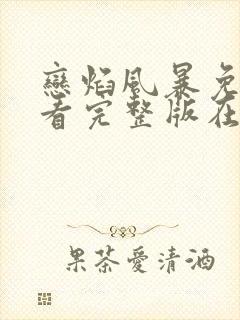 戀焰風暴免
看完整版在
果茶愛清酒